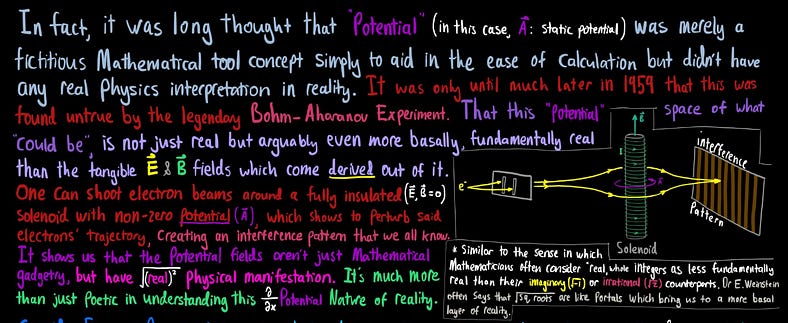 In fact, it was long thought that "Potential" (in this case, A⃗: static potential) was merely a
fictitious Mathematical tool concept simply to aid in the ease of calculation but didn't have
any real Physics interpretation in reality. It was only until much later in 1959 that this was
found untrue by the legendary Bohm-Aharanov Experiment. That this "potential" space of what
"could be", is not just real but arguably even more basally, fundamentally real
than the tangible E⃗ & B⃗ fields which come derived out of it.
One can shoot electron beams around a fully insulated (E⃗, B⃗=0)
Solenoid with non-zero Potential (A⃗), which shows to perturb said
electrons' trajectory, creating an interference pattern that we all know.
It shows us that the Potential fields aren't just Mathematical
gadgetry, but have √(real)² Physical manifestation. It's much more
than just Poetic in understanding this ∂/∂x Potential Nature of reality.
B⃗
I
e⁻
interference
Pattern
Solenoid
* Similar to the sense in which
Mathematicians often consider "real, whole integers as less fundamentally
real than their imaginary (√-1) or irrational (√2) counterparts. Dr E. Weinstein
often says that √sq. roots are like Portals which bring us to a more basal
layer of reality.